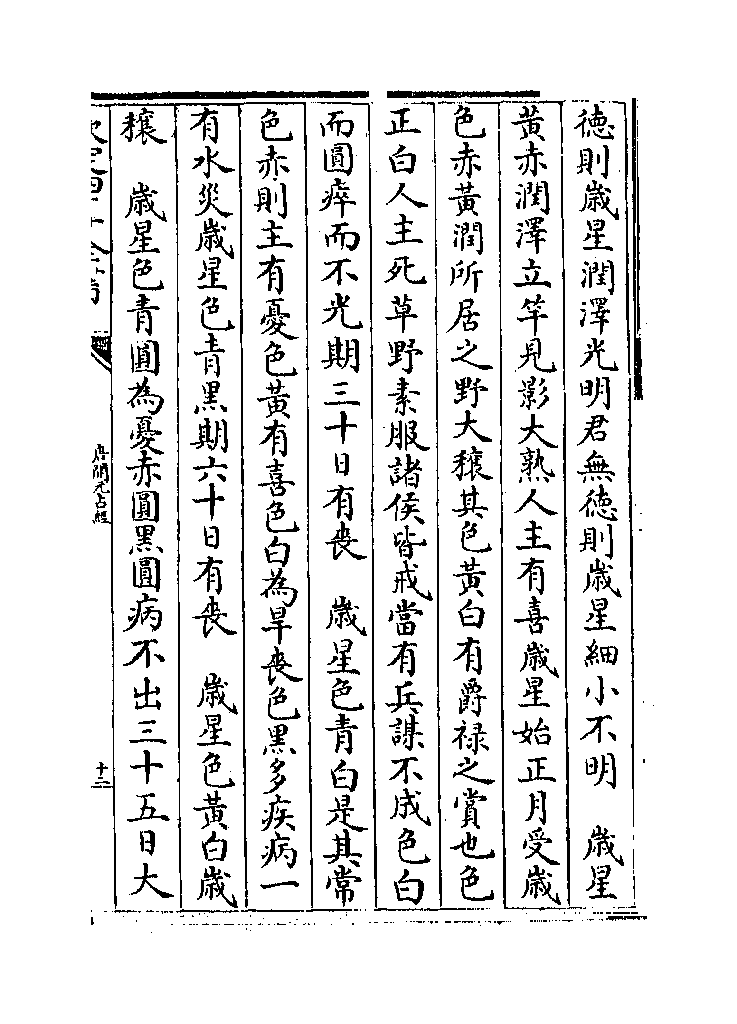 德則歲星潤澤光明君無德則歲星細小不明　歲星
黃赤潤澤立竿見影大熟人主有喜歲星始正月受歲
色赤黃潤所居之野大穰其色黃白有爵禄之賞也色
正白人主死草野素服諸侯皆戒當有兵謀不成色白
而圓瘁而不光期三十日有喪　歲星色青白是其常
色赤則主有憂色黃有喜色白為旱喪色黑多疾病一
有水災歲星色青黑期六十日有喪　歲星色黃白歲
穰　歲星色青圓為憂赤圓黑圓病不出三十五日大
唐開元占經
十二